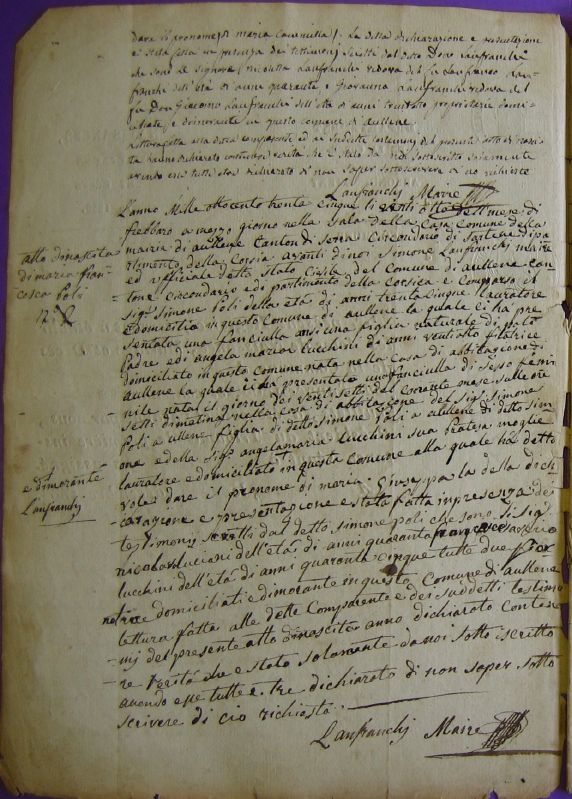 dare il pronome di maria Courinetta /. La detta dichiarazione e presentazione
e stata fatta in presenza dei testimonj scielti dal detto Don Lanfranchi
che sono le Signore Nicoletta Lanfranchi vedova del fu Lanfranco Lan-
franchi dell'età di anni quaranta, e Giovanna Lanfranchi vedova del
fu Don Giacomo Lanfranchi dell'età di anni trentatre proprietarie domi-
ciliate, e dimorante in questo comune di aullene
lettura fatta alla detta comparente ed ai suddetti testimonj del presente atto di nascita
hanno dichiarato contenere verità che è stato da noi sottoscritto solamente
avendo esse tutte due dichiarato di non saper sottoscrivere di ciò richieste
Lanfranchj Maire
L'anno Mille ottocento trenta Cinque li venti otto del mese di
febbraro a mezzo giorno nella Sala della Casa Comune della
maria di aullene Canton di Serra Circondaro di Sartene dipa-
rtimento della Corsica avanti di noi Simone Lanfranchj maire
ed ufficiale dello Stato Civile del Comune di aullena can-
tone Circondario e di partimento della Corsica e Comparso il
sigr. Simone Poli della età di anni trenta Cinque lauratore
e domicilia in questo Comune di aullene la quale ci ha pre
sentata una fanciulla ansi una figlia naturale di dato
Padre e di angela maria lucchini di anni ventiotto filatrice
domiciliato in questo Comune nata nella Casa di abbitazione di
aullene la quale ci da presentato una fanciulla di sesso femi-
nile nata il giorno dei ventisetti del Corrante mese sulle ore
setti di metina nella Casa di abbitazione del Sigr. Simone
Poli a ullene figlia di detto Simone Poli a ullene di detto Sim
one e della Sigr. angelamaria lucchini sua Peatesa moglie
lauratore e domicilitati in questa Comune alla quale ha detto
vole dare il pronome di maria. Giuseppa la della dich-
carazione e presentazione e stata fatta in presenza de
testimonj scelti dal detto Simone Poli che sono li Sigr.
nicolao luciani dell'età di anni quaranta francesco saverio
lucchini dell'età di anni quaranta Cinque tutte due
domiciliati e dimorante in questo Comune di aullene
lettura fatta alle dette Comparente e dei suddetti testimo
nj del presente atto di nascita anno dichiarato Contene
re verità che e stato Solamente da noi sotto iscritto
avendo esse tutte e tre dichiarato di non saper sotto
scrivere di cio richiesto.
Lanfranchj Maire
atto di nascita
di maria fran-
cesca Poli
12
e dimorante
Lanfranchj